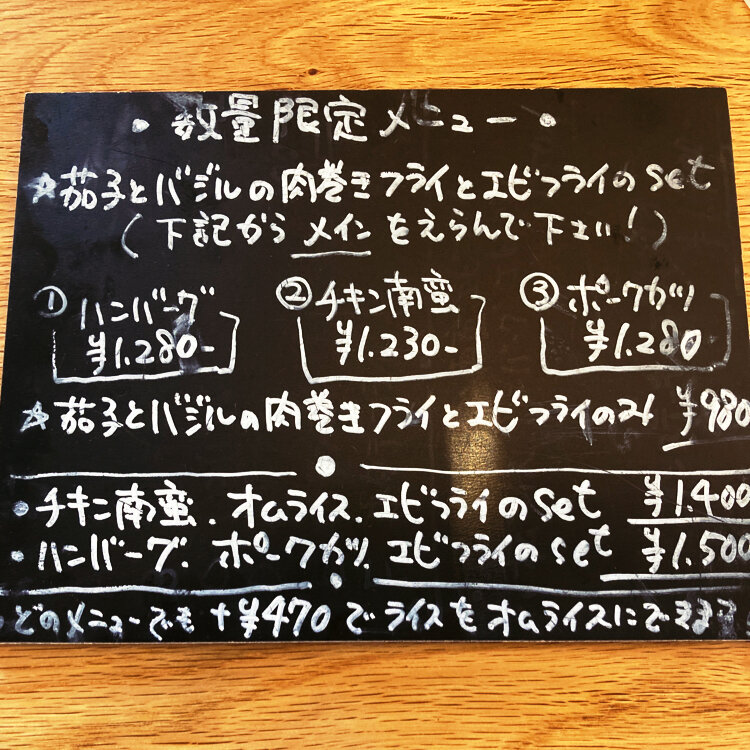 ・数量限定メニュー・
☆茄子とバジルの肉巻きフライとエビフライのset
(下記からメインをえらんで下さい!)
① ハンバーグ ② チキン南蛮 ③ ポークカツ
¥1.280- ¥1.230- ¥1.280
☆茄子とバジルの肉巻きフライとエビフライのみ ¥980
・チキン南蛮.オムライス.エビフライのset ¥1.400
・ハンバーグ.ポークカツ.エビフライのset ¥1.500
どのメニューでも+¥470でライスをオムライスにできます